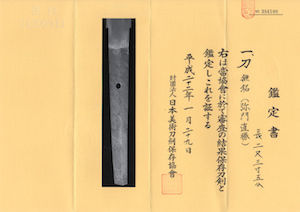 鑑定書
一、刀 無銘(弥門直勝)
長 二尺三寸五分
右は當協會に於て審査の結果保存刀剣と
鑑定しこれを証する
平成二十二年一月二十九日
財団法人 日本美術刀剣保存協會